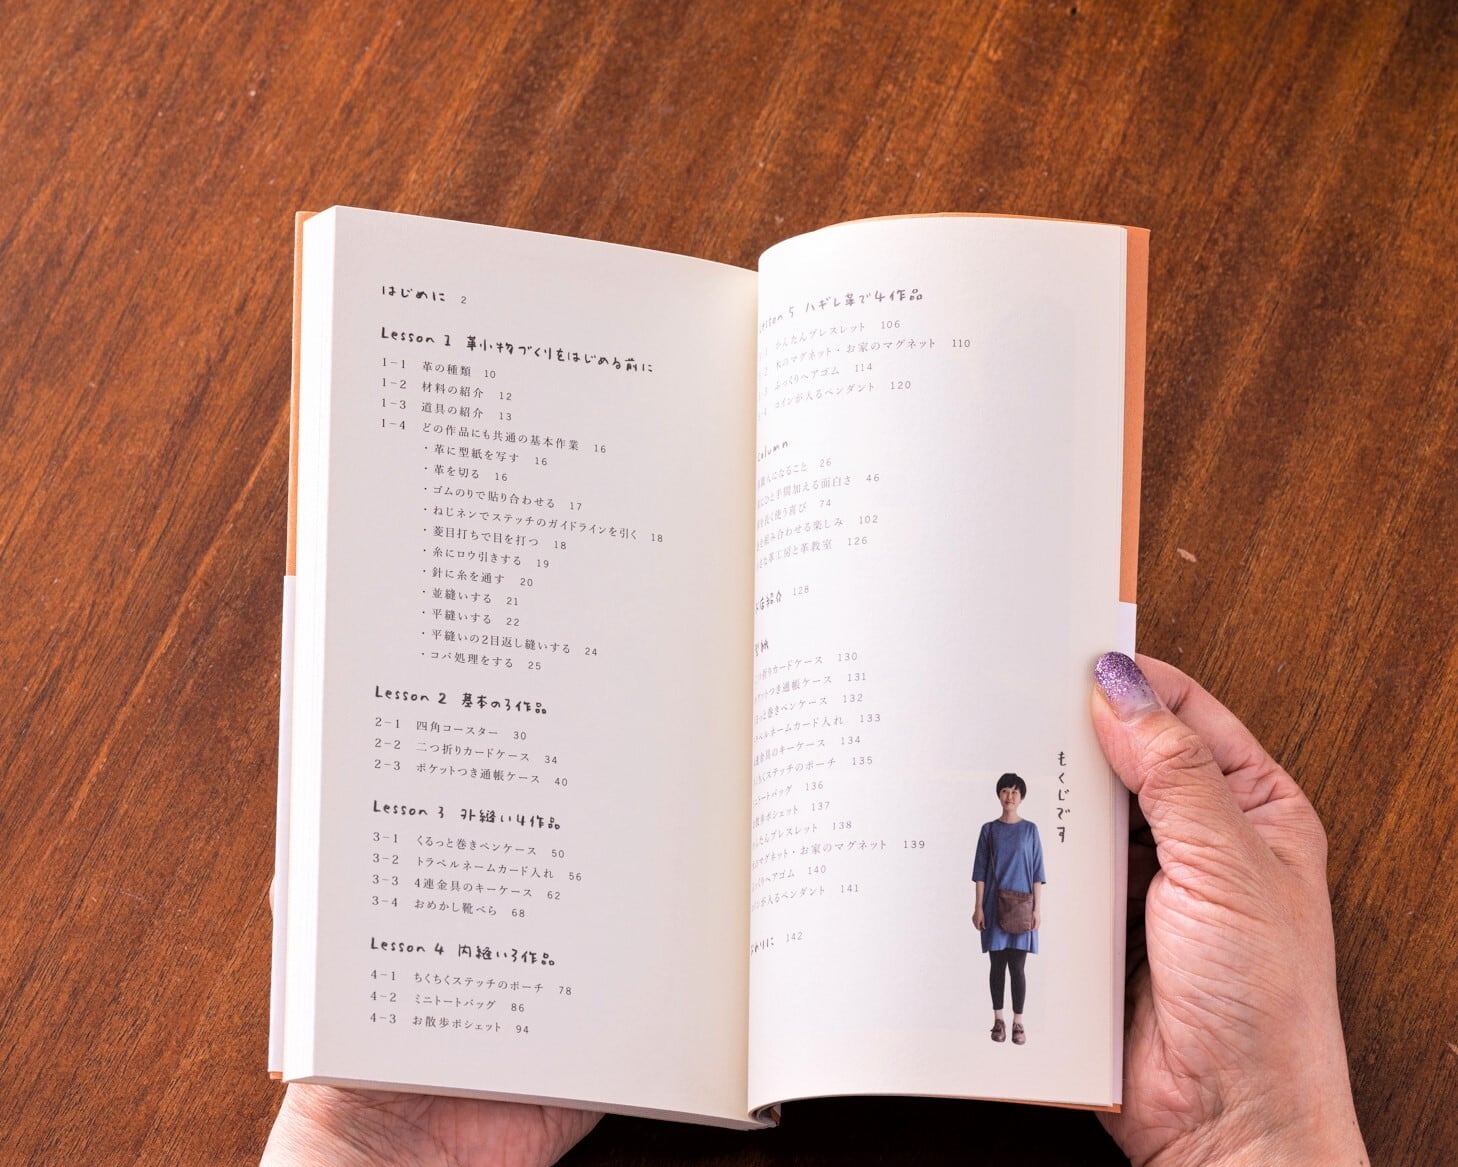 はじめに 2
Lesson 1 革小物づくりをはじめる前に
1-1 革の種類 10
1-2 材料の紹介 12
1-3 道具の紹介 13
1-4 どの作品にも共通の基本作業 16
・革に型紙を写す 16
・革を切る 16
・ゴムのりで貼り合わせる 17
・ねじネンでステッチのガイドラインを引く 18
・菱目打ちで目を打つ 18
・糸にロウ引きする 19
・針に糸を通す 20
・並縫いする 21
・平縫いする 22
・平縫いの2目返し縫いする 24
・コバ処理をする 25
Lesson 2 基本の3作品
2-1 四角コースター 30
2-2 二つ折りカードケース 34
2-3 ポケットつき通帳ケース 40
Lesson 3 外縫い4作品
3-1 くるっと巻きペンケース 50
3-2 トラベルネームカード入れ 56
3-3 4連金具のキーケース 62
3-4 おめかし靴べら 68
Lesson 4 内縫い3作品
4-1 ちくちくステッチのポーチ 78
4-2 ミニトートバッグ 86
4-3 お散歩ポシェット 94
Lesson 5 ハギレ革で4作品
かんたんブレスレット 106
-2 木のマグネット・お家のマグネット 110
-3 ぷっくりヘアゴム 114
-4 コインが入るペンダント 120
Column
職人になること 26
にひと手間加える面白さ 46
を長く使う喜び 74
を組み合わせる楽しみ 102
さな革工房と革教室 126
お店紹介 128
型紙
二つ折りカードケース 130
ポケットつき通帳ケース 131
くるっと巻きペンケース 132
トラベルネームカード入れ 133
4連金具のキーケース 134
ちくちくステッチのポーチ 135
ミニトートバッグ 136
お散歩ポシェット 137
かんたんブレスレット 138
木のマグネット・お家のマグネット 139
ぷっくりヘアゴム 140
コインが入るペンダント 141
おわりに 142
もくじです